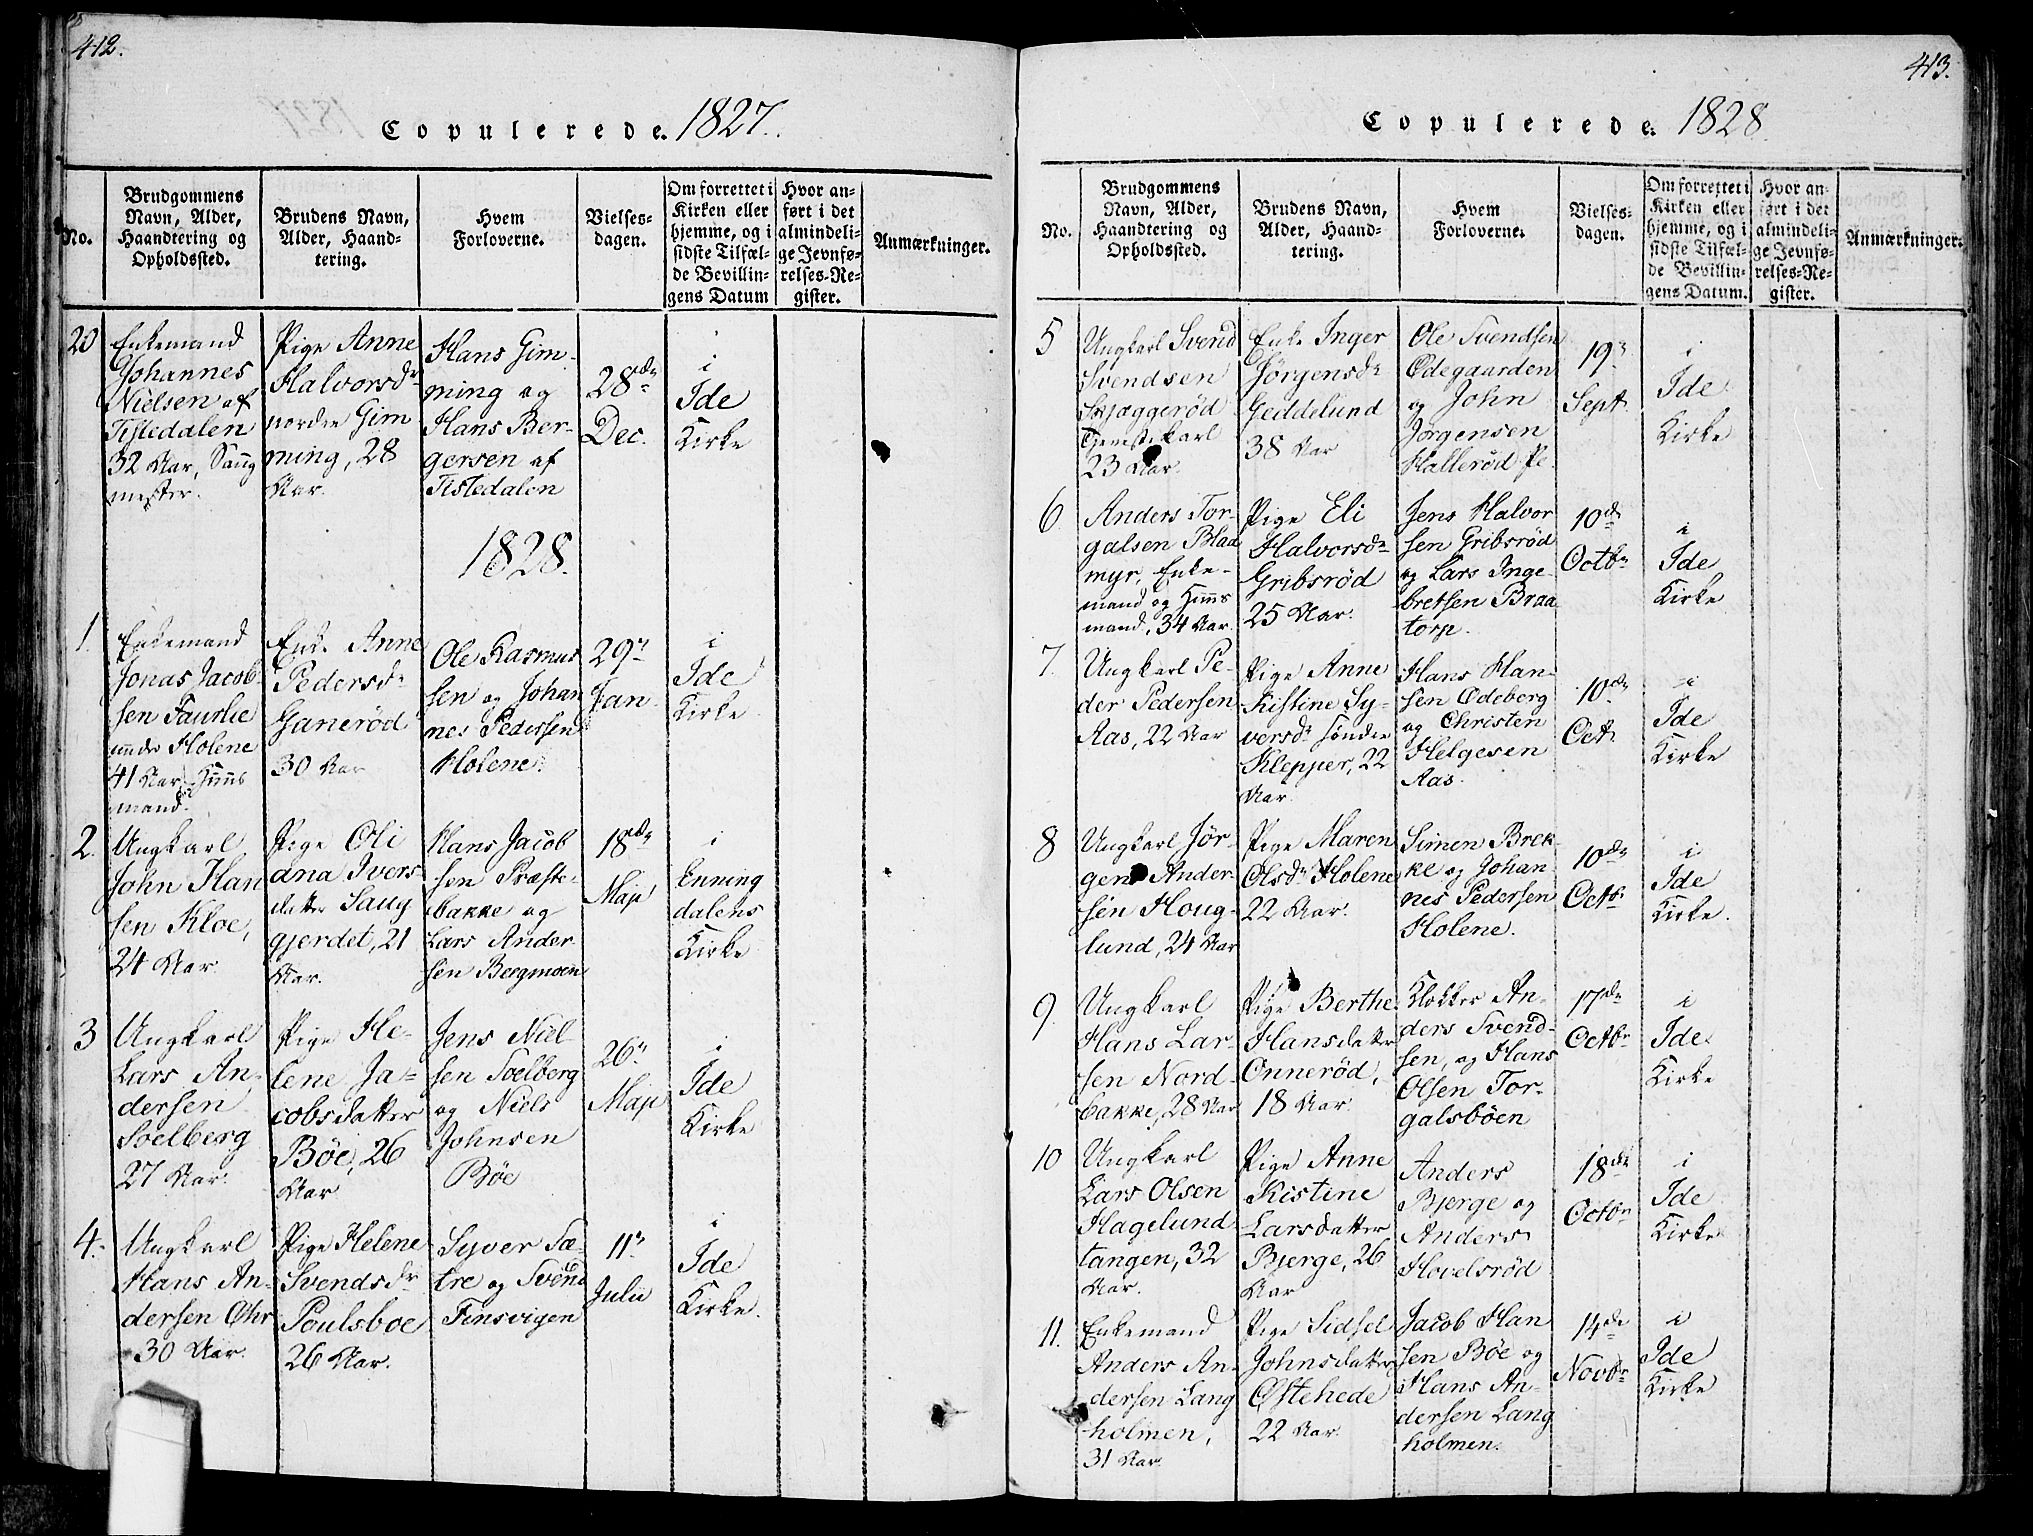 412.
Copulerede. 1827.
No.
Brudgommens
Navn, Alder,
Haandtering og
Opholdssted.
Brudens Navn,
Alder, Haand-
tering.
Hvem
Forloverne.
Vielses-
dagen.
Om forrettet i
Kirken eller
hjemme, og i
sidste Tilfæl-
de Bevillin-
gens Datum
Hvor an-
ført i det
almindeli-
ge Jevnfø-
relses-Re-
gister.
Anmærkninger.
20
Enkemand
Johannes
Nielsen af
Tistedalen
32 Aar, Saug
mester.
Pige Anne
Halvorsdr
nordre Gim
ming, 28
Aar.
Hans Gim-
ming og
Hans Ber-
gersen af
Tistedalen
28de
Dec.
i
Ide
Kirke
1828.
1.
Enkemand
Jonas Jacob-
sen Faurlie
under Holene
41 Aar, Huus
mand.
Enke Anne
Pedersdr
Ganerød
30 Aar
Ole Rasmus
sen og Johan
nes Pedersen
Holene.
29n
Jan.
i
Ide
Kirke
2.
Ungkarl
John Han
sen Kloe,
24 Aar
Pige Oli
ana Ivers
datter Saug
gjerdet, 21
Aar.
Hans Jacob
sen Præste-
bakke og
Lars Ander
sen Bergmoen
18de
Maji
i
Enning
dalens
Kirke
3
Ungkarl
Lars An-
dersen
Soelberg
27 Aar.
Pige He-
lene Ja-
cobsdatter
Böe, 26
Aar
Jens Niel
sen Soelberg
og Niels
Johnsen
Böe
26n
Maji
i
Ide
Kirke
4.
Ungkarl
Hans An-
dersen Øhr
30 Aar.
Pige Helene
Svendsdr
Poulsboe
26 Aar.
Syver Sæ-
tre og Svend
Finsvigen
11n
Julii
i
Ide
Kirke.
413.
Copulerede. 1828.
No.
Brudgommens
Navn, Alder,
Haandtering og
Opholdssted.
Brudens Navn,
Alder, Haand-
tering.
Hvem
Forloverne.
Vielses-
dagen.
Om forrettet i
Kirken eller
hjemme, og i
sidste Tilfæl-
de Bevillin-
gens Datum.
Hvor an-
ført i det
almindeli-
ge Jevnfø-
relses-Re-
gister.
Anmærkninger.
5
Ungkarl Svend
Svendsen
Skjæggerød
Tjenestekarl
23 Aar.
Enke Inger
Jörgensdr
Geddelund
38 Aar
Ole Svendsen
Ödegaarden
og John
Jørgensen
Hallerød
19n
Sept.
i
Ide
Kirke
6
Anders Tor-
galsen Blaa
myr, Enke-
mand og Huus
mand, 34 Aar.
Pige Eli
Halvorsdr
Gribsröd
25 Aar.
Jens Halvor
sen Gribsröd
og Lars Inge-
bretsen Braa
torp.
10de
Octbr
i
Ide
Kirke
7.
Ungkarl Pe-
der Pedersen
Aas, 22 Aar
Pige Anne
Kistine Sy-
versdr søndre
Klepper, 22
Aar.
Hans Han-
sen Ödeberg
og Christen
Helgesen
Aas.
10de
Oct.
i
Ide
Kirke
8
Ungkarl Jör-
gen Ander-
sen Houg-
lund, 24 Aar
Pige Maren
Olsdr Holene
22 Aar.
Simen Brek-
ke og Johan
nes Pedersen
Holene.
10de
Octbr
i
Ide
Kirke.
9.
Ungkarl
Hans Lar-
sen Nord-
bakke, 28 Aar
Pige Berthe
Hansdatter
Onneröd,
18 Aar.
Klokker An-
ders Svend-
sen, og Hans
Olsen Tor-
galsböen
17de
Octbr
i
Ide
Kirke
10
Ungkarl
Lars Olsen
Hagelund-
tangen, 32
Aar.
Pige Anne
Kistine
Larsdatter
Bjerge, 26
Aar
Anders
Bjerge og
Anders
Hovelsröd
18de
Octbr
i
Ide
Kirke
11.
Enkemand
Anders An-
dersen Lang
holmen,
31 Aar.
Pige Sidsel
Johnsdatter
Østehede
22 Aar.
Jacob Han
sen Böe og
Hans An-
dersen Lang
holmen.
14de
Novbr
i
Ide
Kirke